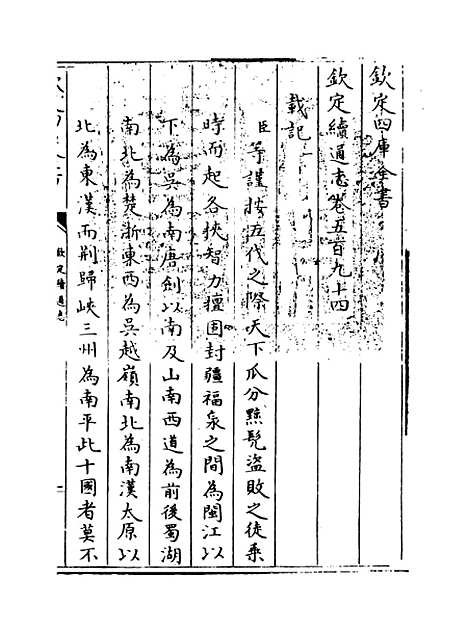 欽定四庫全書
欽定續通志卷五百九十四
載記一
臣等謹按五代之際天下瓜分黥髡盜敗之徒乘
時而起各挾智力擅固封疆福泉之間為閩江以
下為吳為南唐劍以南及山南西道為前後蜀湖
南北為楚浙東西為吳越嶺南北為南漢太原以
北為東漢而荆歸峽三州為南平此十國者莫不
欽定續通志
一